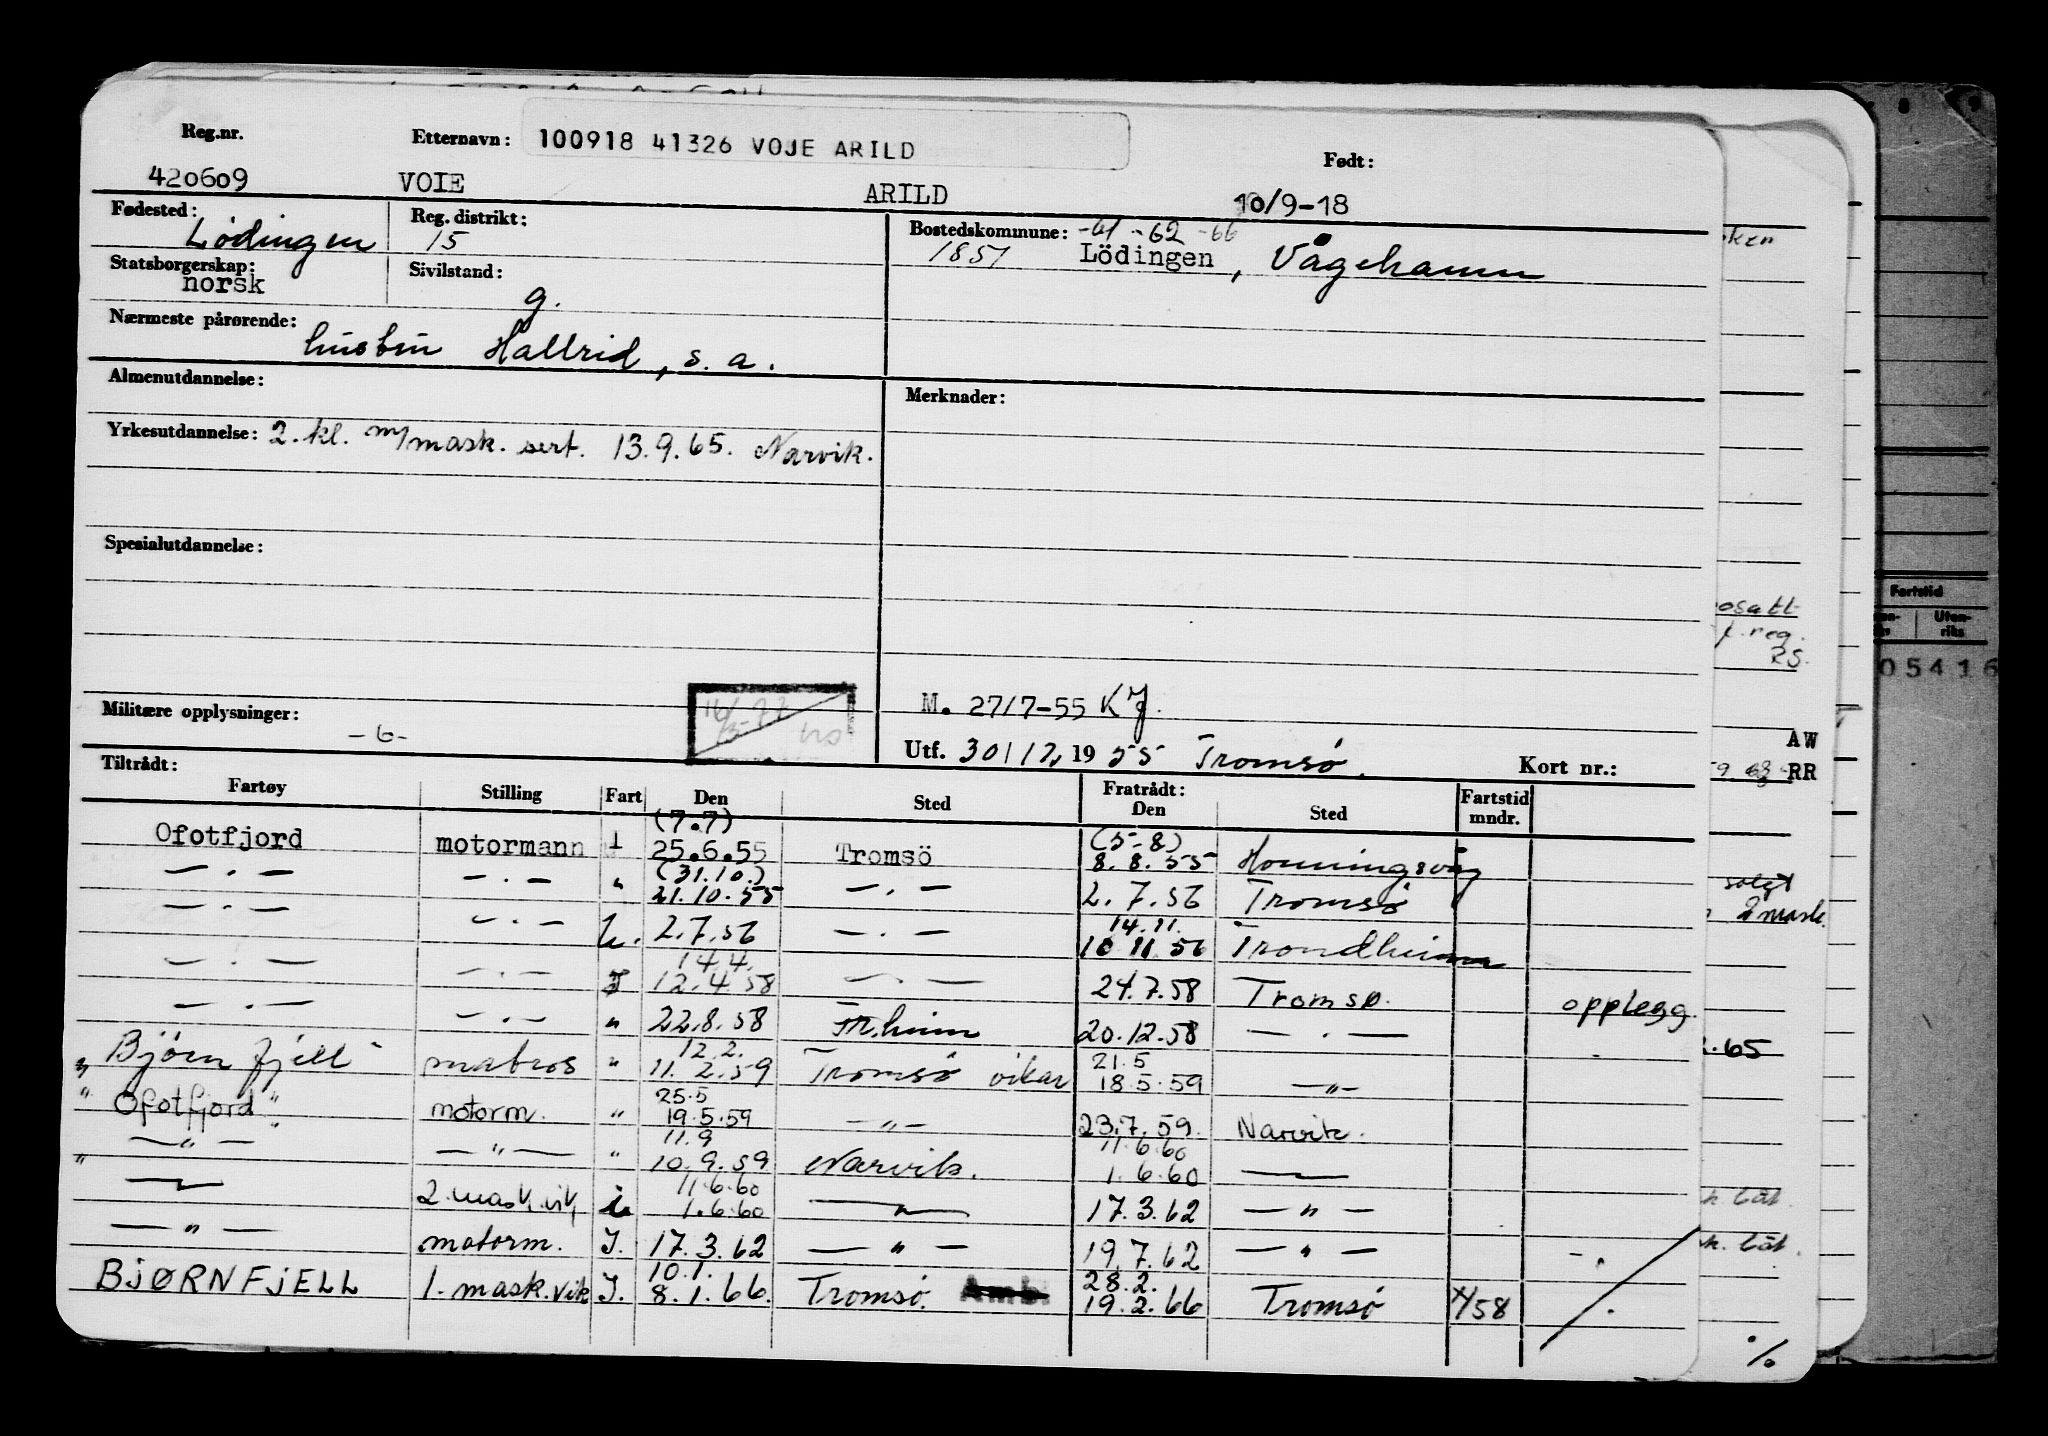 Reg.nr. Etternavn: 100918 41326 VOJE ARILD Født:
420609 VOIE ARILD 10/9-18
Fødested: Lödingen Reg. distrikt: 15 Bostedskommune: -61 -62 -66
1851 Lödingen, Vågehamn
Statsborgerskap: norsk Sivilstand: g.
Nærmeste pårørende: hustru Hallrid, s. a.
Almenutdannelse: Merknader:
Yrkesutdannelse: 2. kl. m/mask. sert. 13.9.65. Narvik.
Spesialutdannelse:
M. 27/7-55 KJ.
Militære opplysninger: -6-
Utf. 30/12 1955 Tromsø. Kort nr.:
Tiltrådt: Fratrådt:
Fartøy Stilling Fart Den Sted Den Sted Fartstid mndr.
(7.7) (5-8)
Ofotfjord motormann 25.6.55 Tromsö 8.8.55 Honningsvåg
(31.10.)
— . — — . — " 21.10.55 — . — 2.7.56 Tromsø
14.11.
— . — — . — U. 2.7.56 — . — 10 11 56 Trondheim
14.4.
— . — — . — I 12.4.58 — . — 24.7.58 Tromsø. opplegg.
— . — — . — " 22.8.58 Tr.heim 20.12.58 — . —
12.2. 21.5
Björnfjell matros " 11.2.59 Tromsö vikar 18.5.59 — " —
25.5
" Ofotfjord " motorm. " 19.5.59 — " — 23.7.59. Narvik.
11.9 11.6.60
— " — — " — " 10.9.59 Narvik. 1.6.60 —
11.6.60
" — 2. mask. vik i 1.6.60 — " — 17.3.62 — " —
— " — motorm. I. 17.3.62 — " — 19.7.62 — " —
10.1. 28.2.
BJØRNFJELL 1. mask. vik I. 8.1.66. Tromsø. 19.2.66 Tromsø x/58
Fartstid
Uten-
riks
05416
f. reg.
RS.
AW
RR
solgt
2 mask.
.65
h. båt.
k. båt.
%